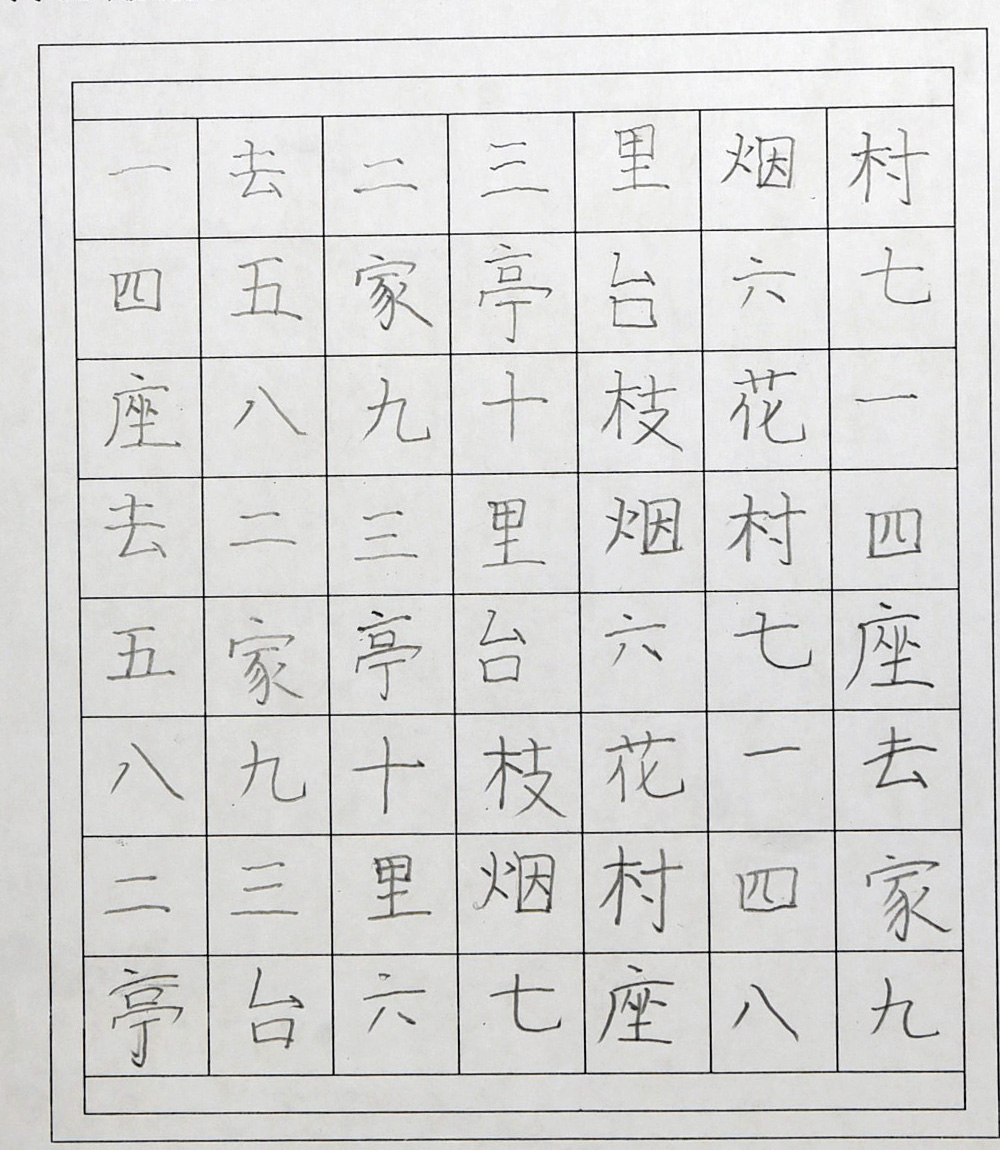 一去二三里烟村
四五家亭台六七
座八九十枝花一
去二三里烟村四
五家亭台六七座
八九十枝花一去
二三里烟村四家
亭台六七座八九